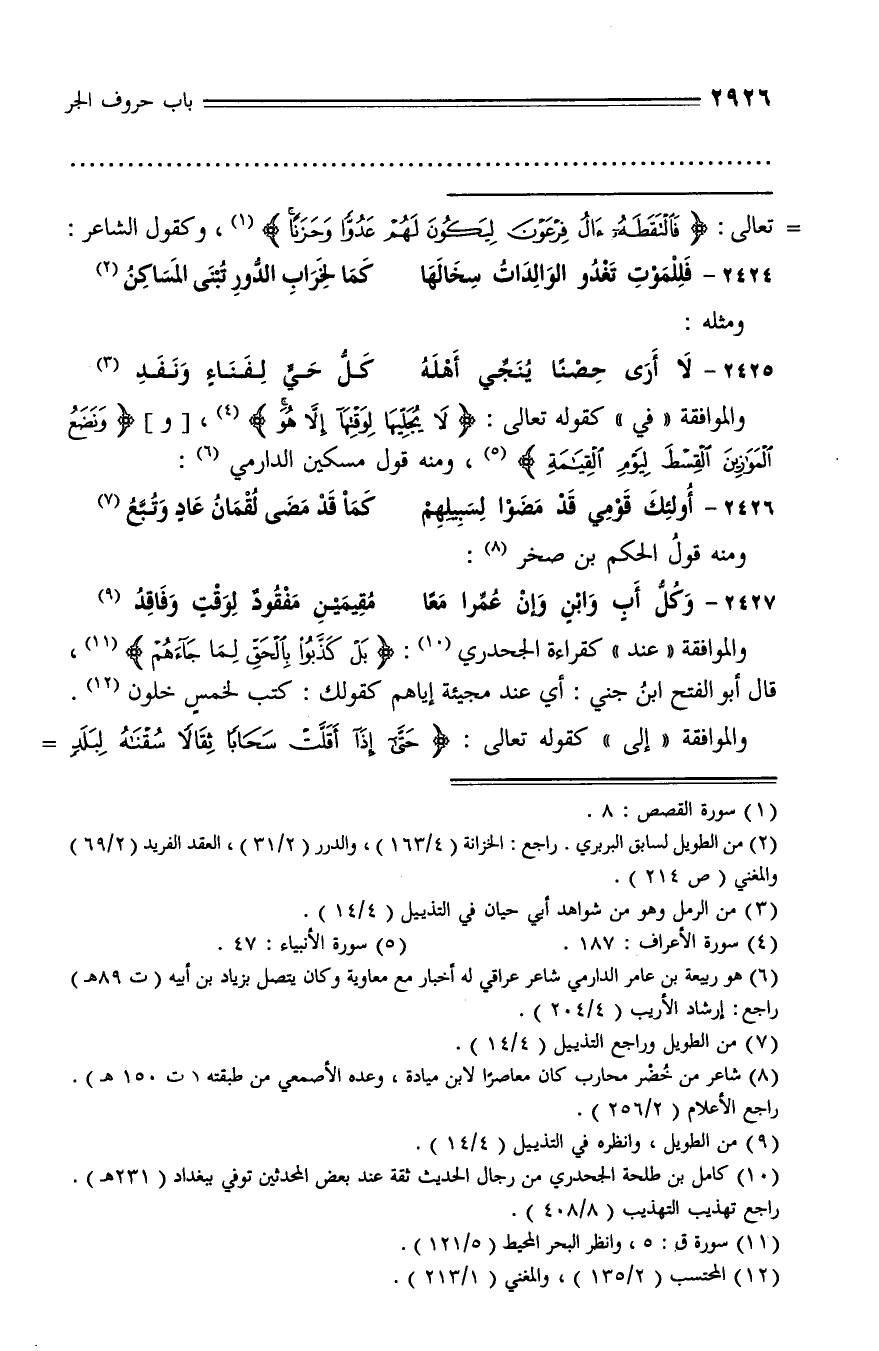 ٢٩٢٦ باب حروف الجر
= تعالى : ﴿ فَالْتَقَطَهُ ءَالُ فِرْعَوْنَ لِيَكُونَ لَهُمْ عَدُوًّا وَحَزَنًا ﴾ (١) ، وكقول الشاعر :
٢٤٢٤ - فَلِلْمَوْتِ تَغْدُو الوَالِدَاتُ سِخَالَهَا كَمَا لِخَرَابِ الدُّورِ تُبْنَى المَسَاكِنُ (٢)
ومثله :
٢٤٢٥ - لَا أَرَى حِصْنًا يُنَجِّي أَهْلَهُ كَلُّ حَيٍّ لِفَنَاءٍ وَنَفَدِ (٣)
والموافقة « في » كقوله تعالى : ﴿ لَا يُجَلِّيهَا لِوَقْتِهَا إِلَّا هُوَ ﴾ (٤) ، [ و ] ﴿ وَنَضَعُ
الْمَوَازِينَ الْقِسْطَ لِيَوْمِ الْقِيَامَةِ ﴾ (٥) ، ومنه قول مسكين الدارمي (٦) :
٢٤٢٦ - أُولئِكَ قَوْمِي قَدْ مَضَوْا لِسَبِيلِهِمْ كَمَاْ قَدْ مَضَى لُقْمَانُ عَادٍ وَتُبَّعُ (٧)
ومنه قولُ الحكم بن صخر (٨) :
٢٤٢٧ - وَكُلُّ أَبٍ وَابْنٍ وَإِنْ عُمِّرا مَعًا مُقِيمَيْنِ مَفْقُودٌ لِوَقْتٍ وَفَاقِدُ (٩)
والموافقة « عند » كقراءة الجحدري (١٠) : ﴿ بَلْ كَذَّبُوا بِالْحَقِّ لِمَا جَاءَهُمْ ﴾ (١١) ،
قال أبو الفتح ابنُ جني : أي عند مجيئة إياهم كقولك : كتب لخمسٍ خلون (١٢) .
والموافقة « إلى » كقوله تعالى : ﴿ حَتَّى إِذَا أَقَلَّتْ سَحَابًا ثِقَالًا سُقْنَاهُ لِبَلَدٍ =
(١) سورة القصص : ٨ .
(٢) من الطويل لسابق البربري . راجع : الخزانة ( ١٦٣/٤ ) ، والدرر ( ٣١/٢ ) ، العقد الفريد ( ٦٩/٢ )
والمغني ( ص ٢١٤ ) .
(٣) من الرمل وهو من شواهد أبي حيان في التذييل ( ١٤/٤ ) .
(٤) سورة الأعراف : ١٨٧ . (٥) سورة الأنبياء : ٤٧ .
(٦) هو ربيعة بن عامر الدارمي شاعر عراقي له أخبار مع معاوية وكان يتصل بزياد بن أبيه ( ت ٨٩هـ )
راجع : إرشاد الأريب ( ٢٠٤/٤ ) .
(٧) من الطويل وراجع التذييل ( ١٤/٤ ) .
(٨) شاعر من خُضْر محارب كان معاصرًا لابن ميادة ، وعده الأصمعي من طبقته ( ت ١٥٠ هـ ) .
راجع الأعلام ( ٢٥٦/٢ ) .
(٩) من الطويل ، وانظره في التذييل ( ١٤/٤ ) .
(١٠) كامل بن طلحة الجحدري من رجال الحديث ثقة عند بعض المحدثين توفي ببغداد ( ٢٣١هـ ) .
راجع تهذيب التهذيب ( ٤٠٨/٨ ) .
(١١) سورة ق : ٥ ، وانظر البحر المحيط ( ١٢١/٥ ) .
(١٢) المحتسب ( ١٣٥/٢ ) ، والمغني ( ٢١٣/١ ) .